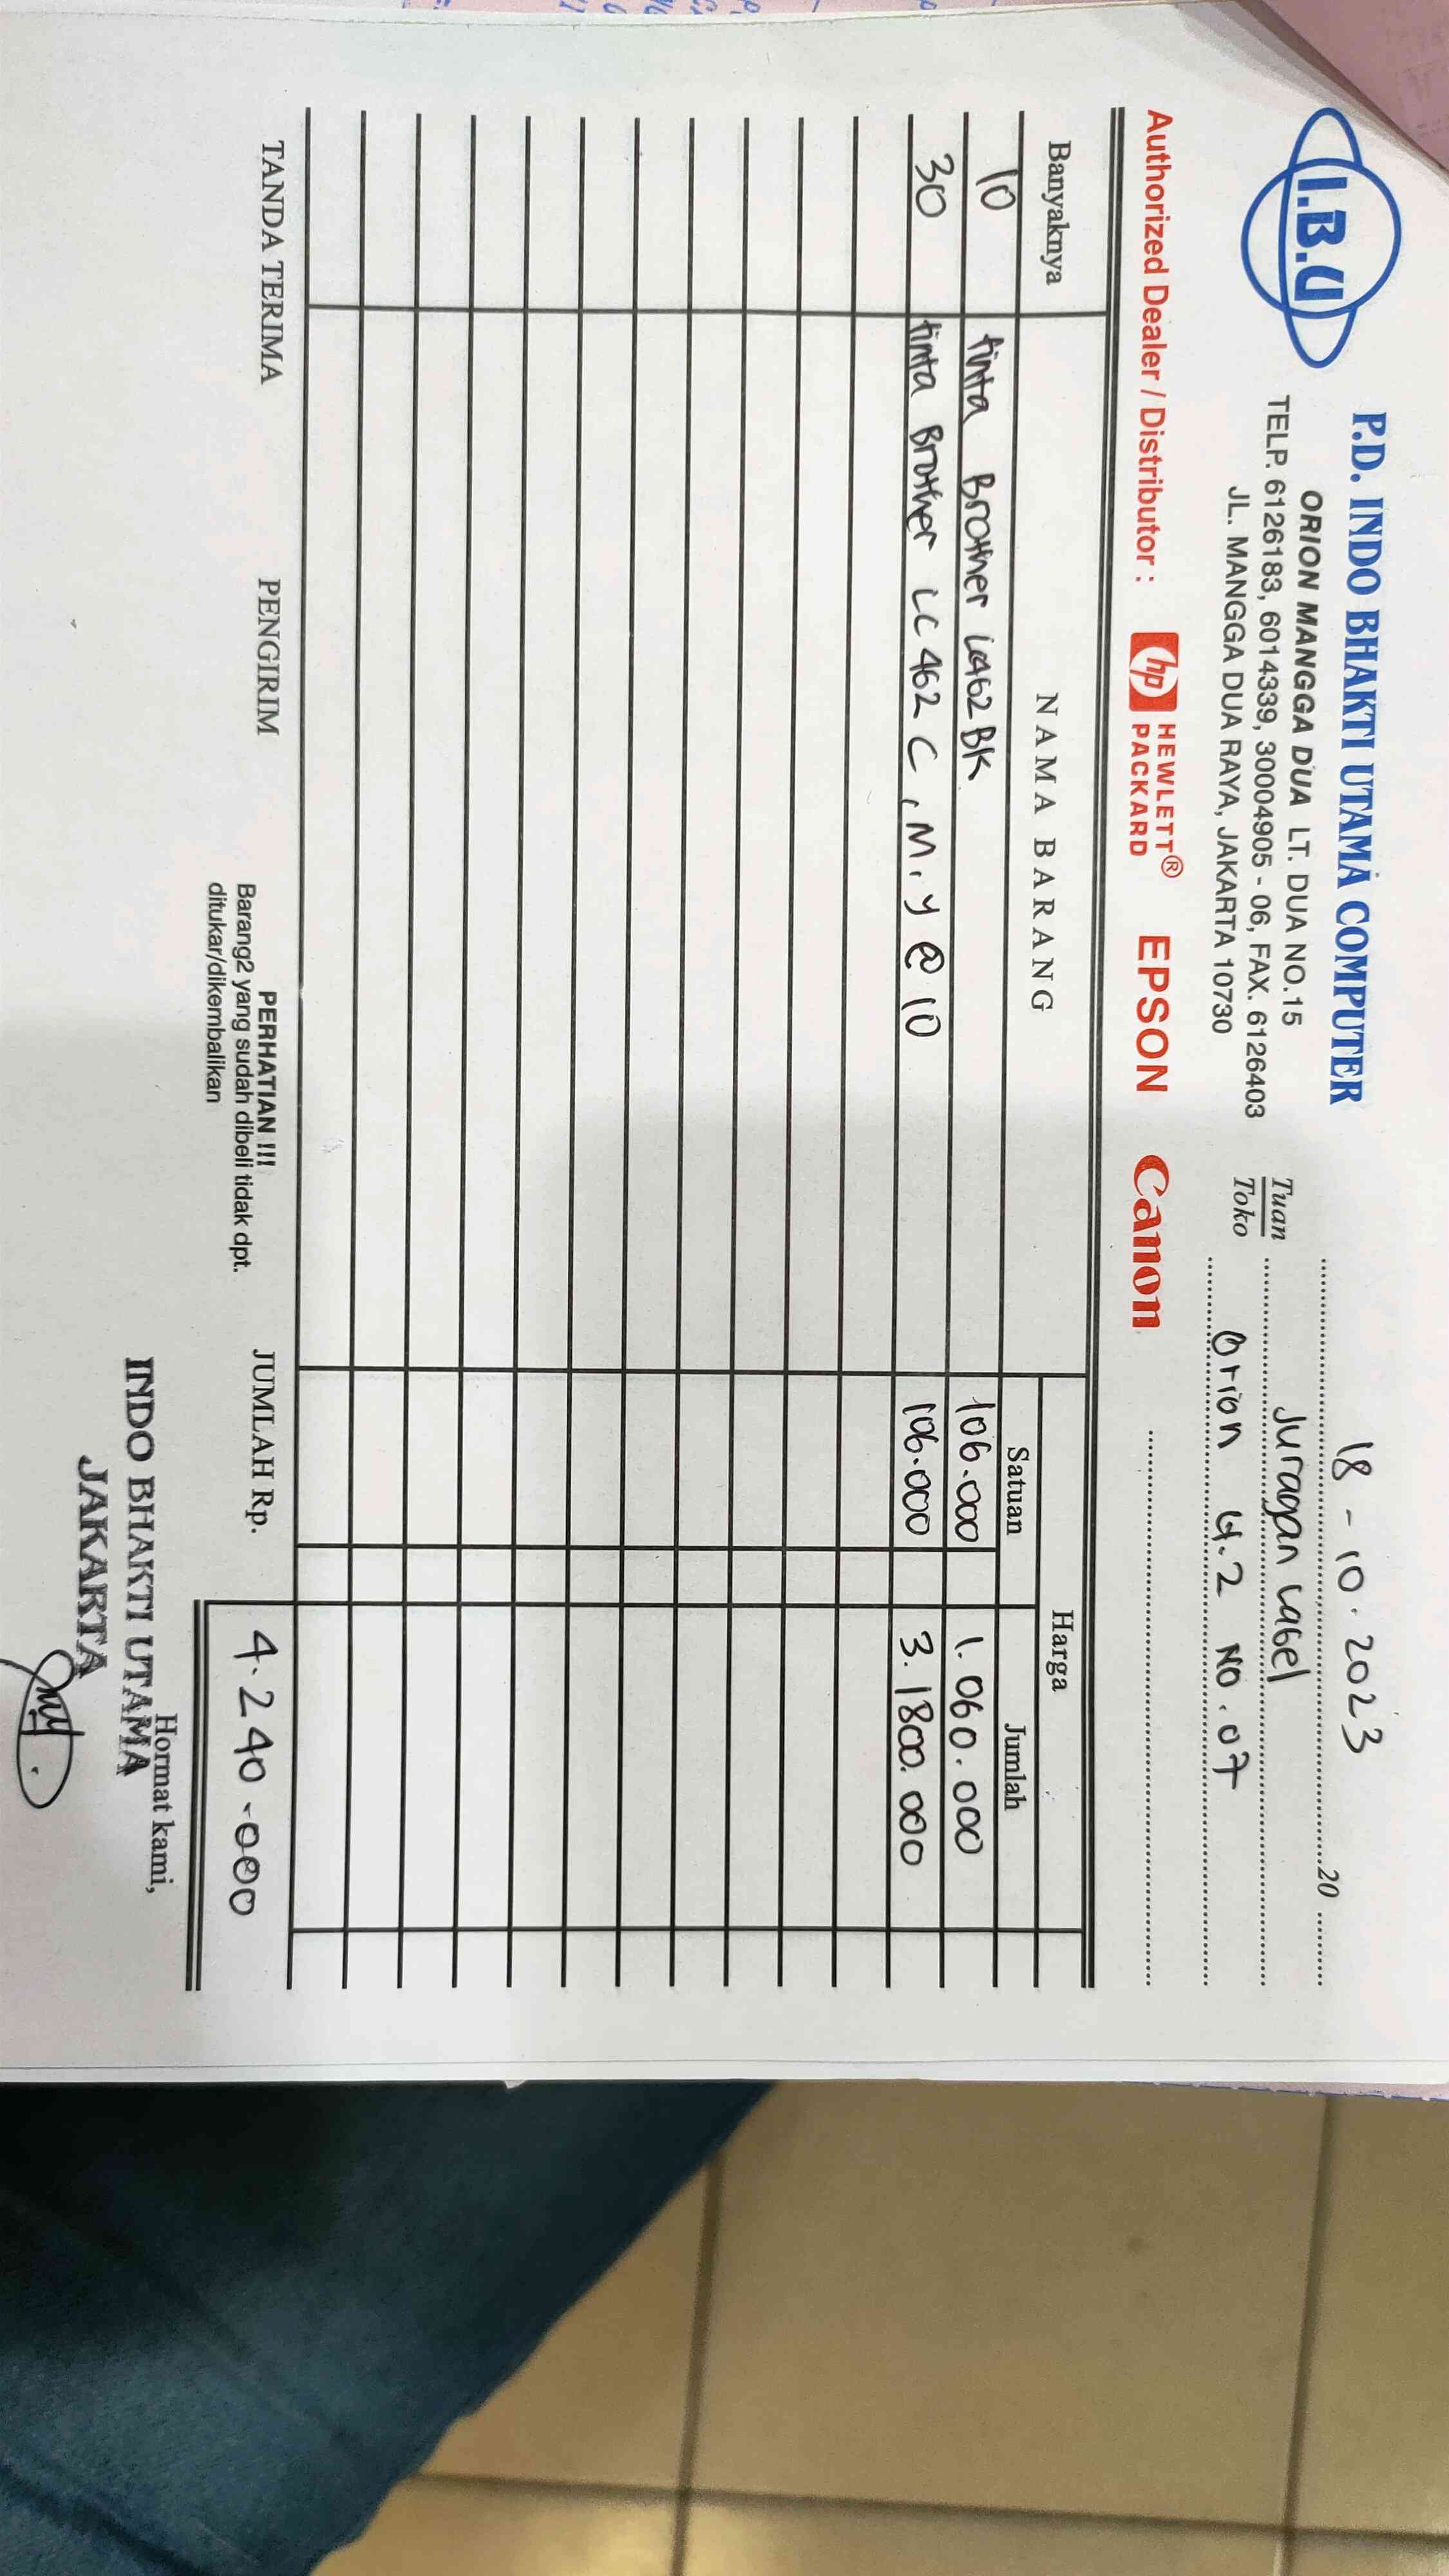 I.B.U
P.D. INDO BHAKTI UTAMA COMPUTER
ORION MANGGA DUA LT. DUA NO.15
TELP. 6126183, 6014339, 30004905 - 06, FAX. 6126403
JL. MANGGA DUA RAYA, JAKARTA 10730
18 - 10 . 2023 20
Tuan Juragan Label
Toko Orion Lt. 2 No. 07
Authorized Dealer / Distributor : hp HEWLETT® PACKARD EPSON Canon
Banyaknya NAMA BARANG Harga
Satuan Jumlah
10 tinta Brother LC462 BK 106.000 1.060.000
30 tinta Brother LC 462 C , M , Y @ 10 106.000 3.1800.000
TANDA TERIMA PENGIRIM PERHATIAN !!! JUMLAH Rp. 4.240.000
Barang2 yang sudah dibeli tidak dpt.
ditukar/dikembalikan
Hormat kami,
INDO BHAKTI UTAMA
JAKARTA